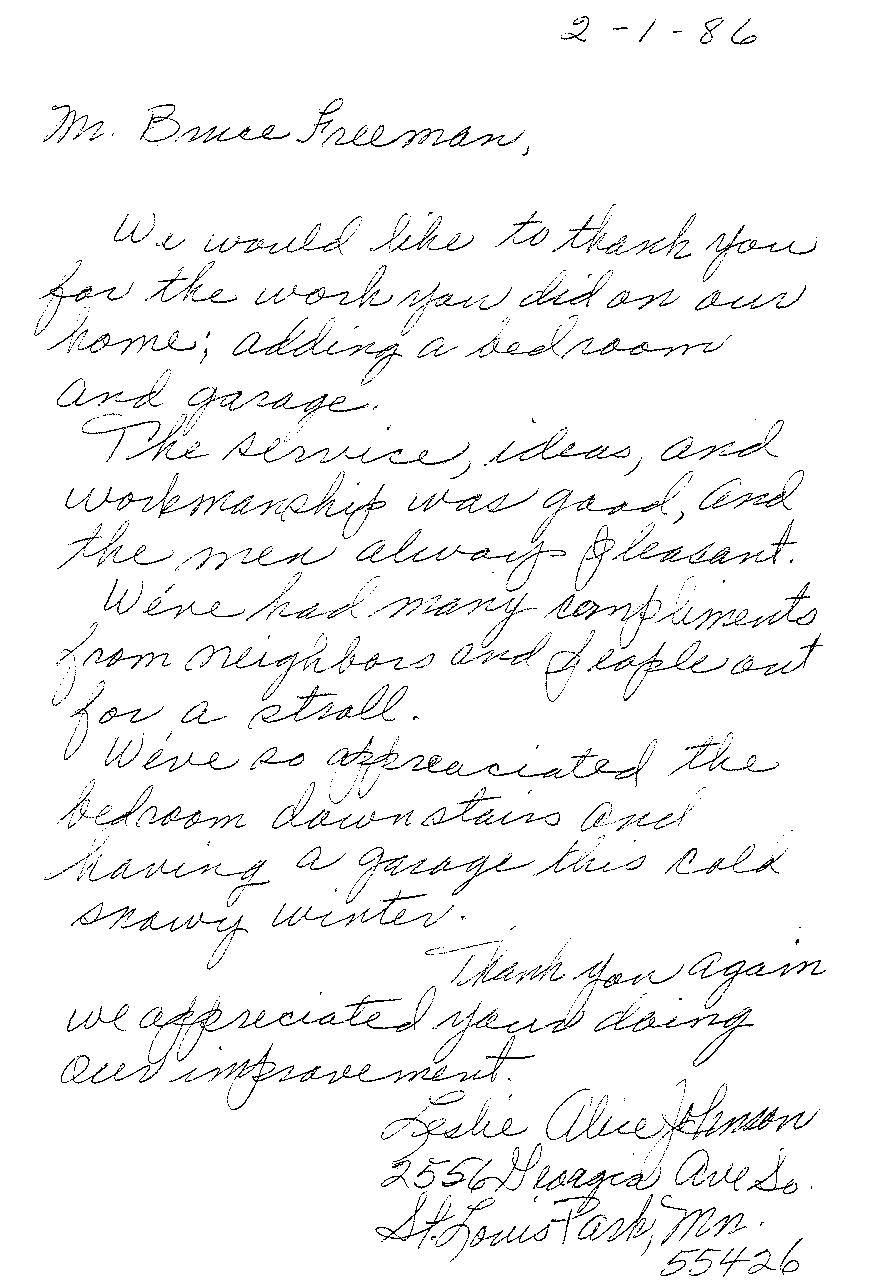 2-1-86
Mr. Bruce Freeman,
We would like to thank you
for the work you did on our
home; adding a bedroom
and garage.
The service, ideas, and
workmanship was good, and
the men always pleasant.
We've had many compliments
from neighbors and people out
for a stroll.
We've so appreaciated the
bedroom downstairs and
having a garage this cold
snowy winter.
Thank you again
we appreciated your doing
our improvement.
Leslie Alice Johnson
2556 Georgia Ave So.
St. Louis Park, Mn.
55426